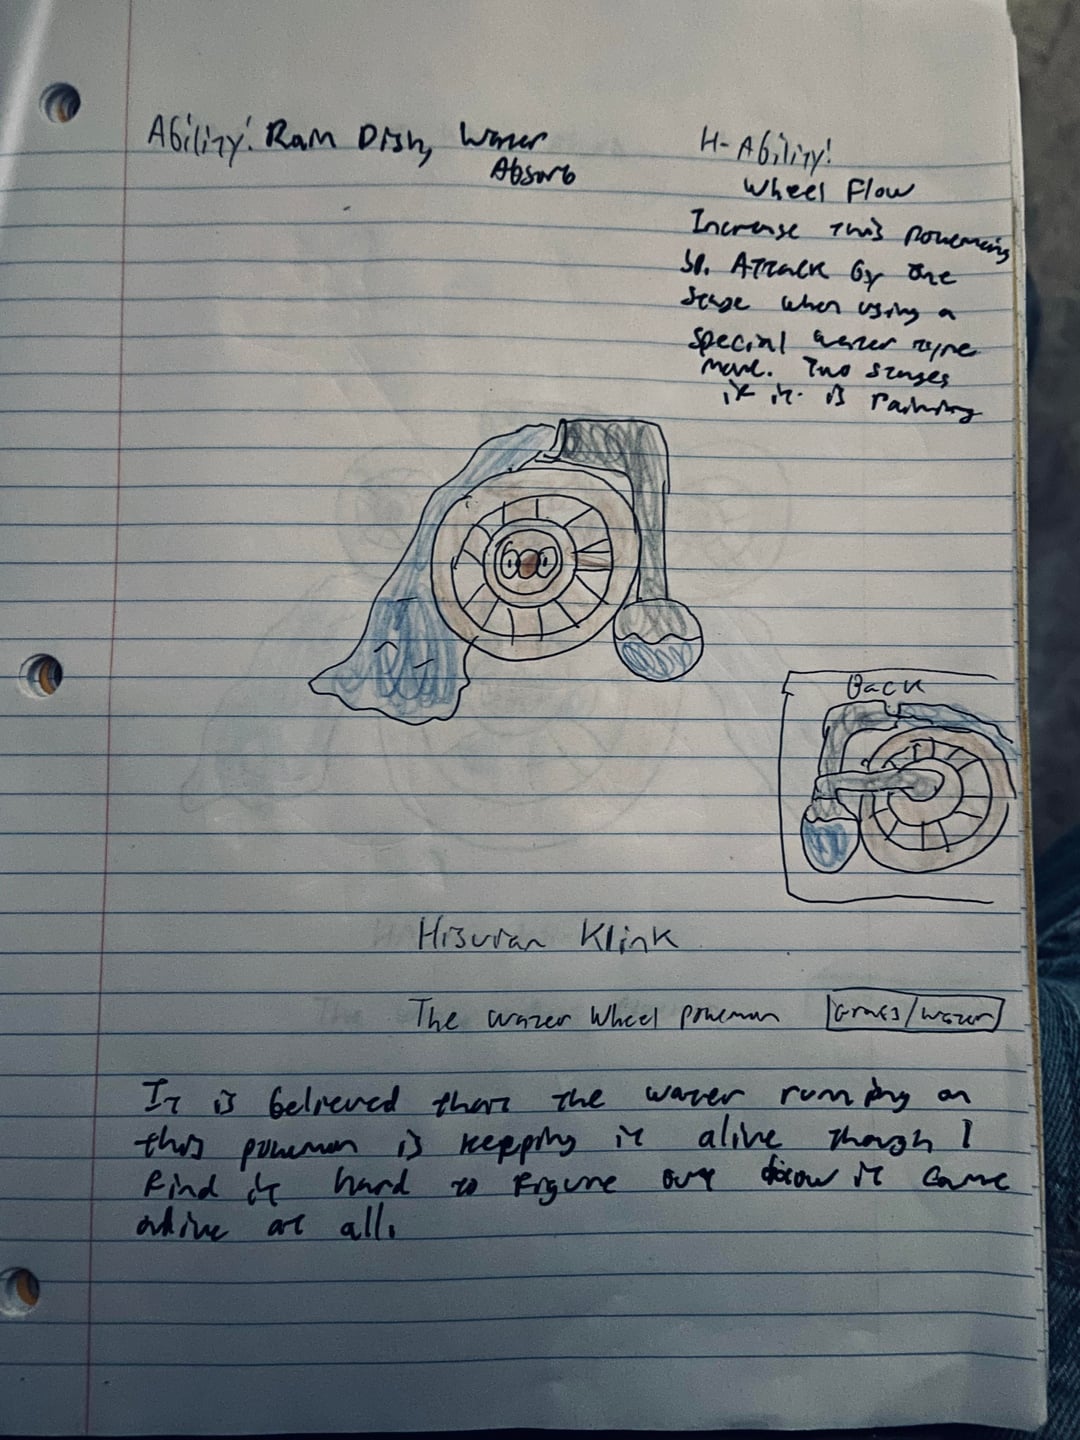 Ability: Rain Dish, Water
Absorb
H-Ability:
Wheel Flow
Increase this pokemons
Sp. Attack by one
stage when using a
special water type
move. Two stages
if it is raining
Back
Hisuian Klink
The water wheel pokemon
Grass/Water
It is believed that the water running on
this pokemon is kepping it alive though I
find it hard to figure out how it came
alive at all.